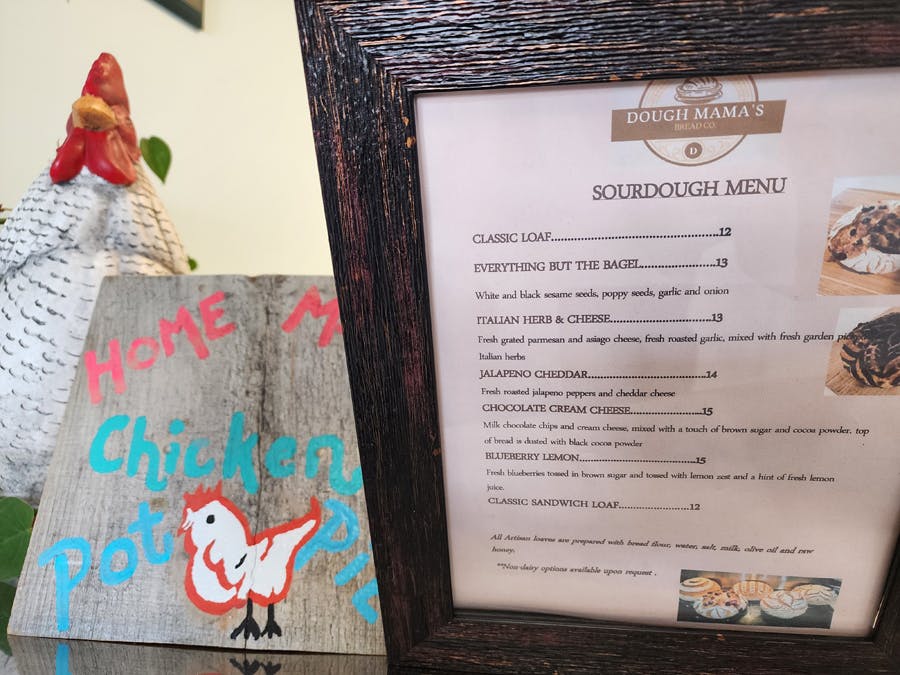 HOME M
Chicken
Pot PiE
DOUGH MAMA'S
BREAD CO.
D
SOURDOUGH MENU
CLASSIC LOAF.................................................12
EVERYTHING BUT THE BAGEL......................13
White and black sesame seeds, poppy seeds, garlic and onion
ITALIAN HERB & CHEESE..............................13
Fresh grated parmesan and asiago cheese, fresh roasted garlic, mixed with fresh garden
Italian herbs
JALAPENO CHEDDAR...................................14
Fresh roasted jalapeno peppers and cheddar cheese
CHOCOLATE CREAM CHEESE......................15
Milk chocolate chips and cream cheese, mixed with a touch of brown sugar and cocoa powder, top
of bread is dusted with black cocoa powder
BLUEBERRY LEMON...................................15
Fresh blueberries tossed in brown sugar and tossed with lemon zest and a hint of fresh lemon
juice.
CLASSIC SANDWICH LOAF......................12
All Artisan loaves are prepared with bread flour, water, salt, milk, olive oil and raw
honey.
**Non-dairy options available upon request .